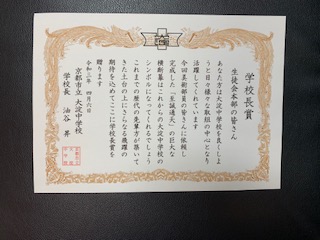 学校長賞
生徒会本部の皆さん
あなた方は大淀中学校を良くしよ
うと日々様々な取組の中心となり
活躍してくれています
今回美術部員の皆さんに依頼し
完成した「至誠通天」の巨大な
横断幕はこれからの大淀中学校の
シンボルになってくれるでしょう
これまでの歴代の先輩方が築いて
きた土台の上にさらなる飛躍の
期待を込めてここに学校長賞を
贈ります
令和三年 四月六日
京都市立 大淀中学校
学校長 油谷 昇